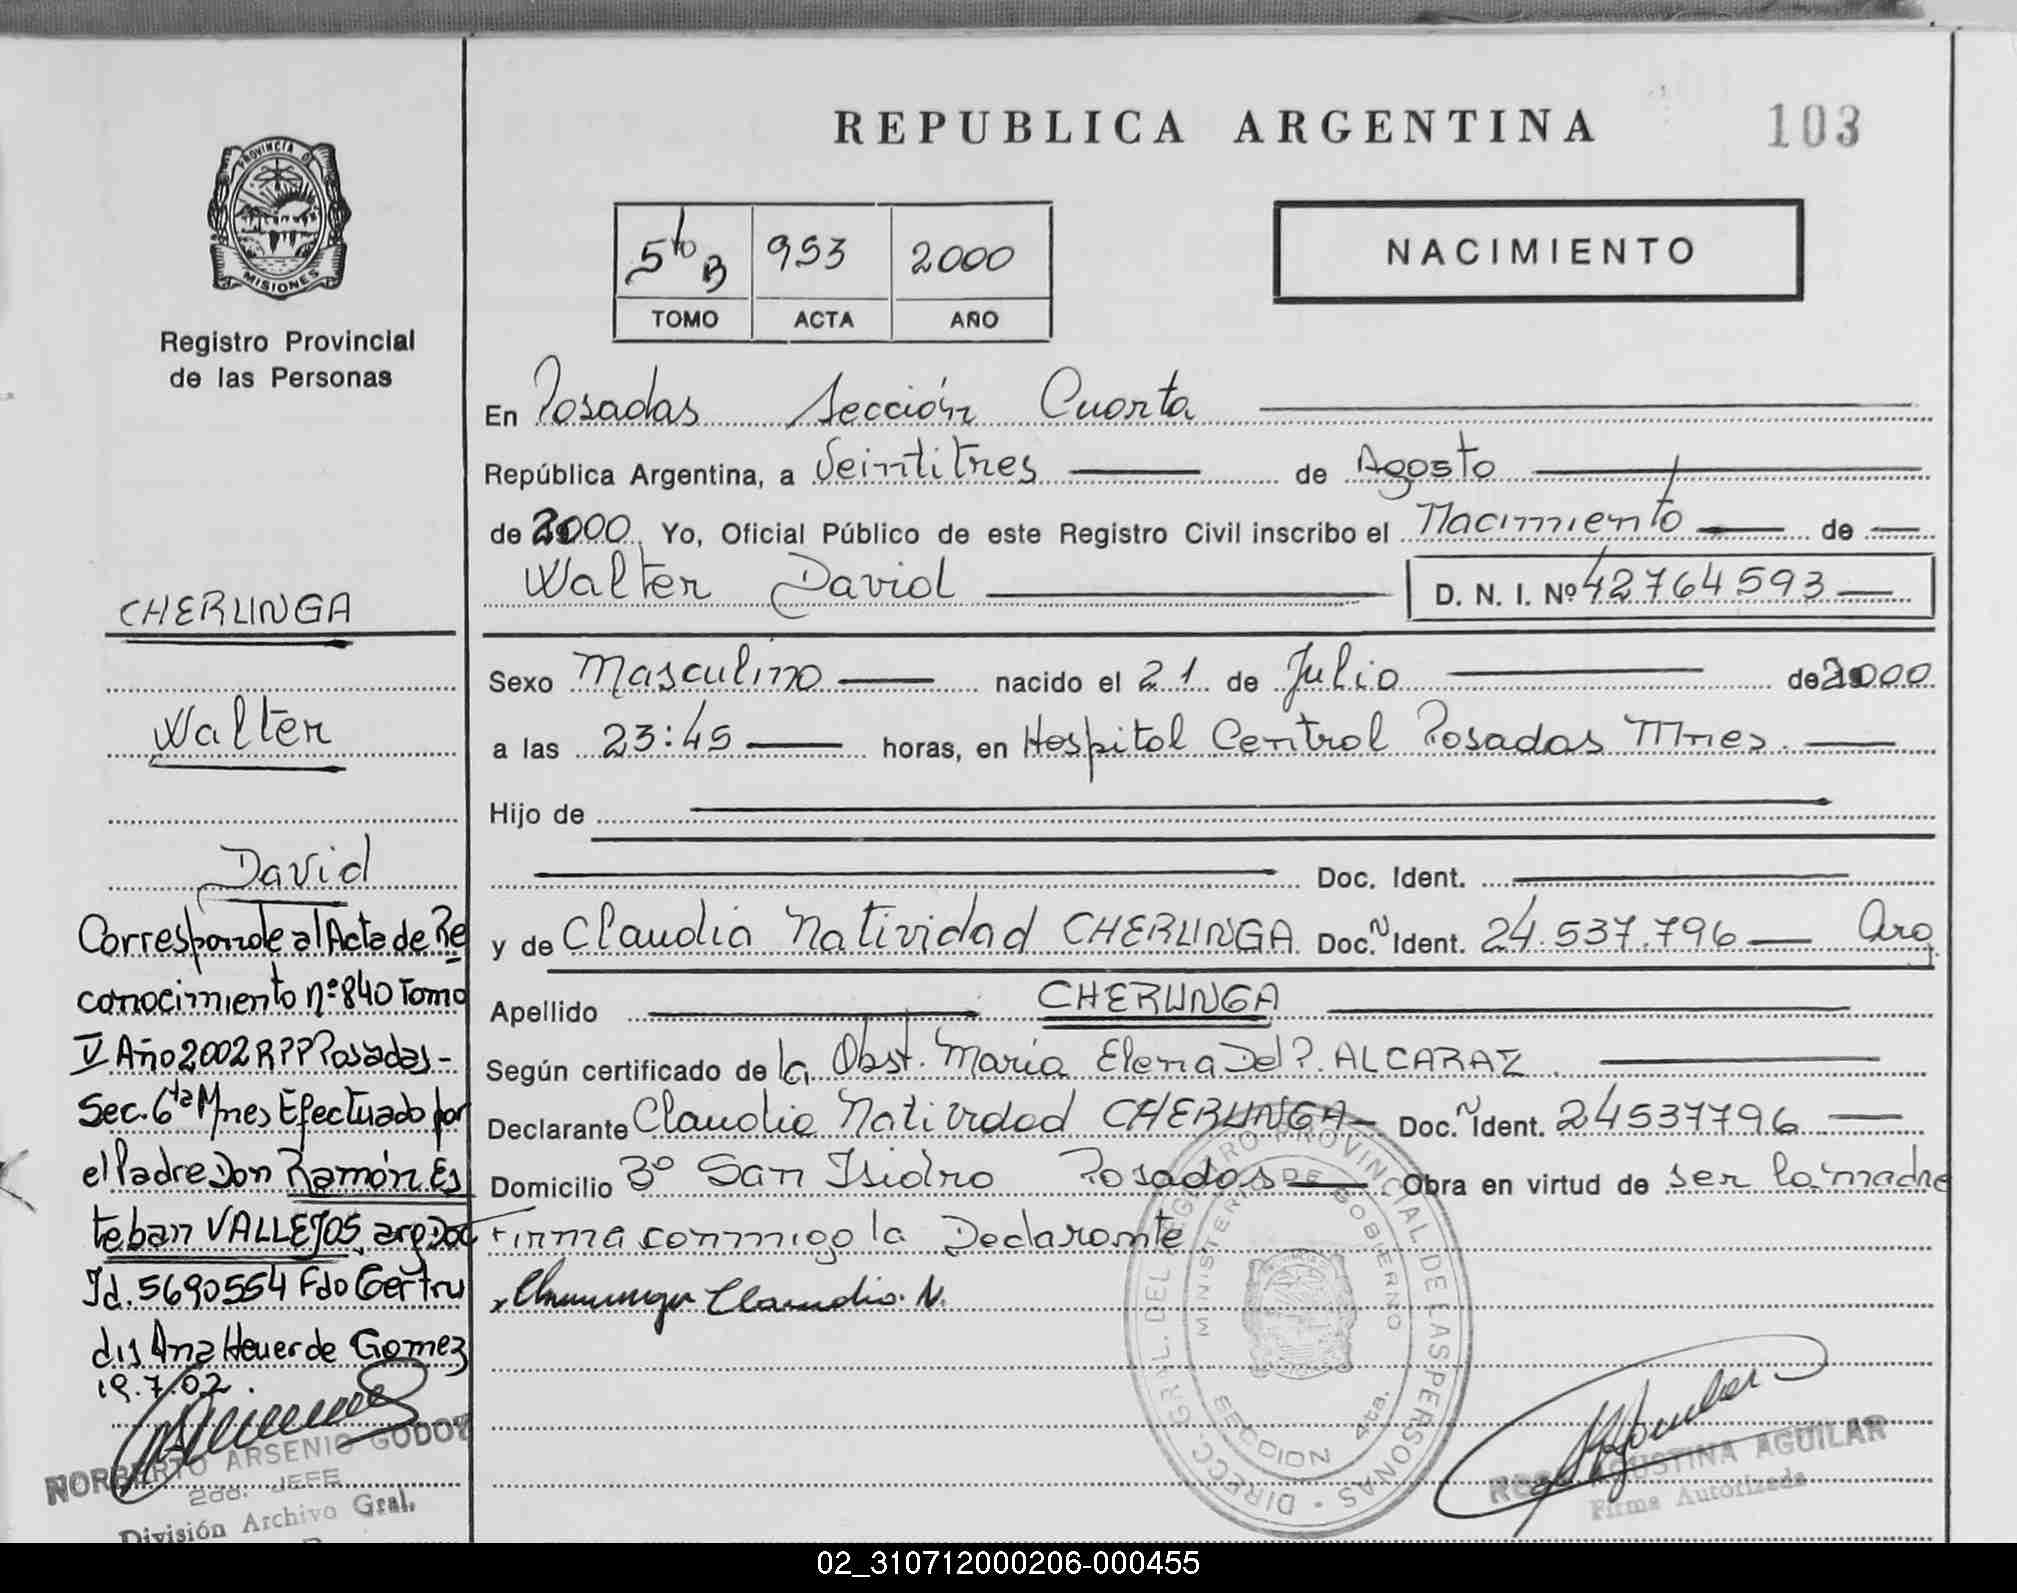 REPUBLICA ARGENTINA
103
PROVINCIA DE
MISIONES
Registro Provincial
de las Personas
5to B 953 2000
TOMO ACTA AÑO
NACIMIENTO
En Posadas Sección Cuarta
República Argentina, a Veintitres de Agosto
de 2000 Yo, Oficial Público de este Registro Civil inscribo el Nacimiento de
Walter David D. N. I. Nº 42764593
Sexo Masculino nacido el 21 de Julio de 2000
a las 23:45 horas, en Hospital Central Posadas Mnes.
Hijo de
Doc. Ident.
y de Claudia Natividad CHERUNGA Doc. Ident. 24.537.796 Arg.
Apellido CHERUNGA
Según certificado de la Obst. María Elena Del P. ALCARAZ
Declarante Claudia Natividad CHERUNGA Doc. Ident. 24537796
Domicilio Bº San Isidro Posadas Obra en virtud de ser la madre
Firma conmigo la Declarante
Claudia. N.
CHERUNGA
Walter
David
Corresponde al Acta de Re
conocimiento nº 840 Tomo
V Año 2002 RPP Posadas-
Sec. 6ta Mnes Efectuado por
el Padre Don Ramón Es
teban VALLEJOS, arg Doc
Id. 5690554 Fdo Gertru
dis Ana Heuer de Gomez
19.7.02.
NORBERTO ARSENIO GODOY
2do. JEFE
División Archivo Gral.
DIRECC. GRAL. DEL REGISTRO PROVINCIAL DE LAS PERSONAS
MINISTERIO DE GOBIERNO
SECCION 4ta.
AGUSTINA AGUILAR
Firma Autorizada
02_310712000206-000455